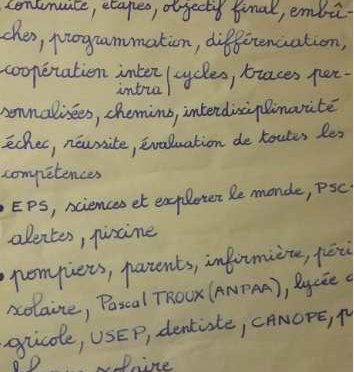 continuité, étapes, objectif final, embû-
ches, programmation, différenciation,
coopération inter/intra cycles, traces per-
sonnalisées, chemins, interdisciplinarité
échec, réussite, évaluation de toutes les
compétences
• EPS, sciences et explorer le monde, PSC
alertes, piscine
• pompiers, parents, infirmière, péri
scolaire, Pascal TROUX (ANPAA), lycée a
gricole, USEP, dentiste, CANOPE,
scolaire